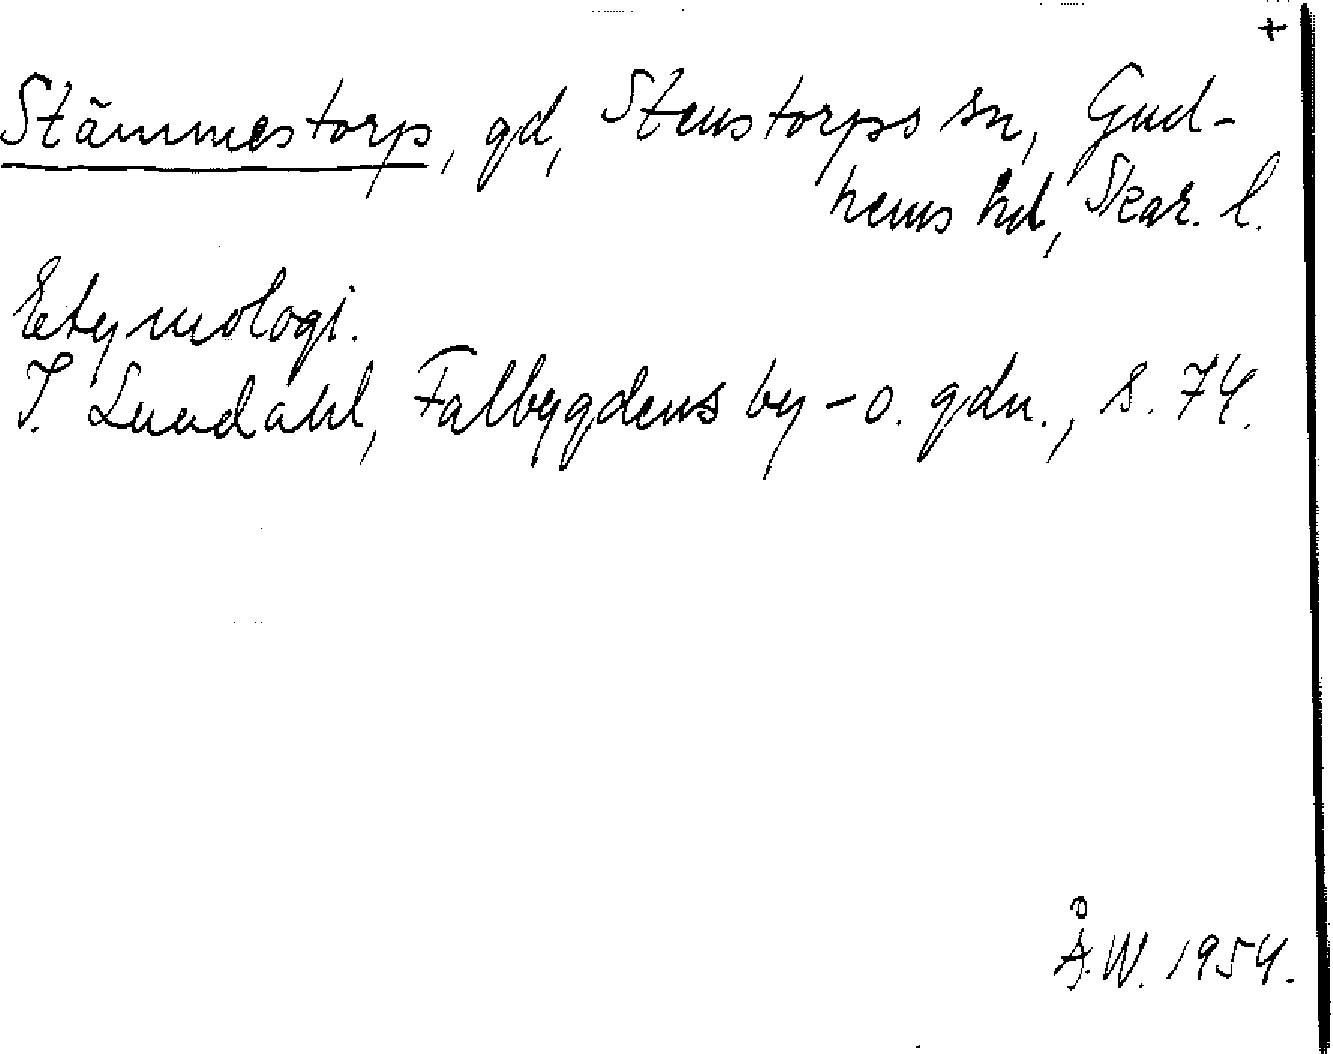 +
Stämmestorp, gd, Stenstorps sn, Gud-
hems hd, Skar. l.
Etymologi.
I. Lundahl, Falbygdens by- o. gdn., s. 74.
Å.W. 1954.